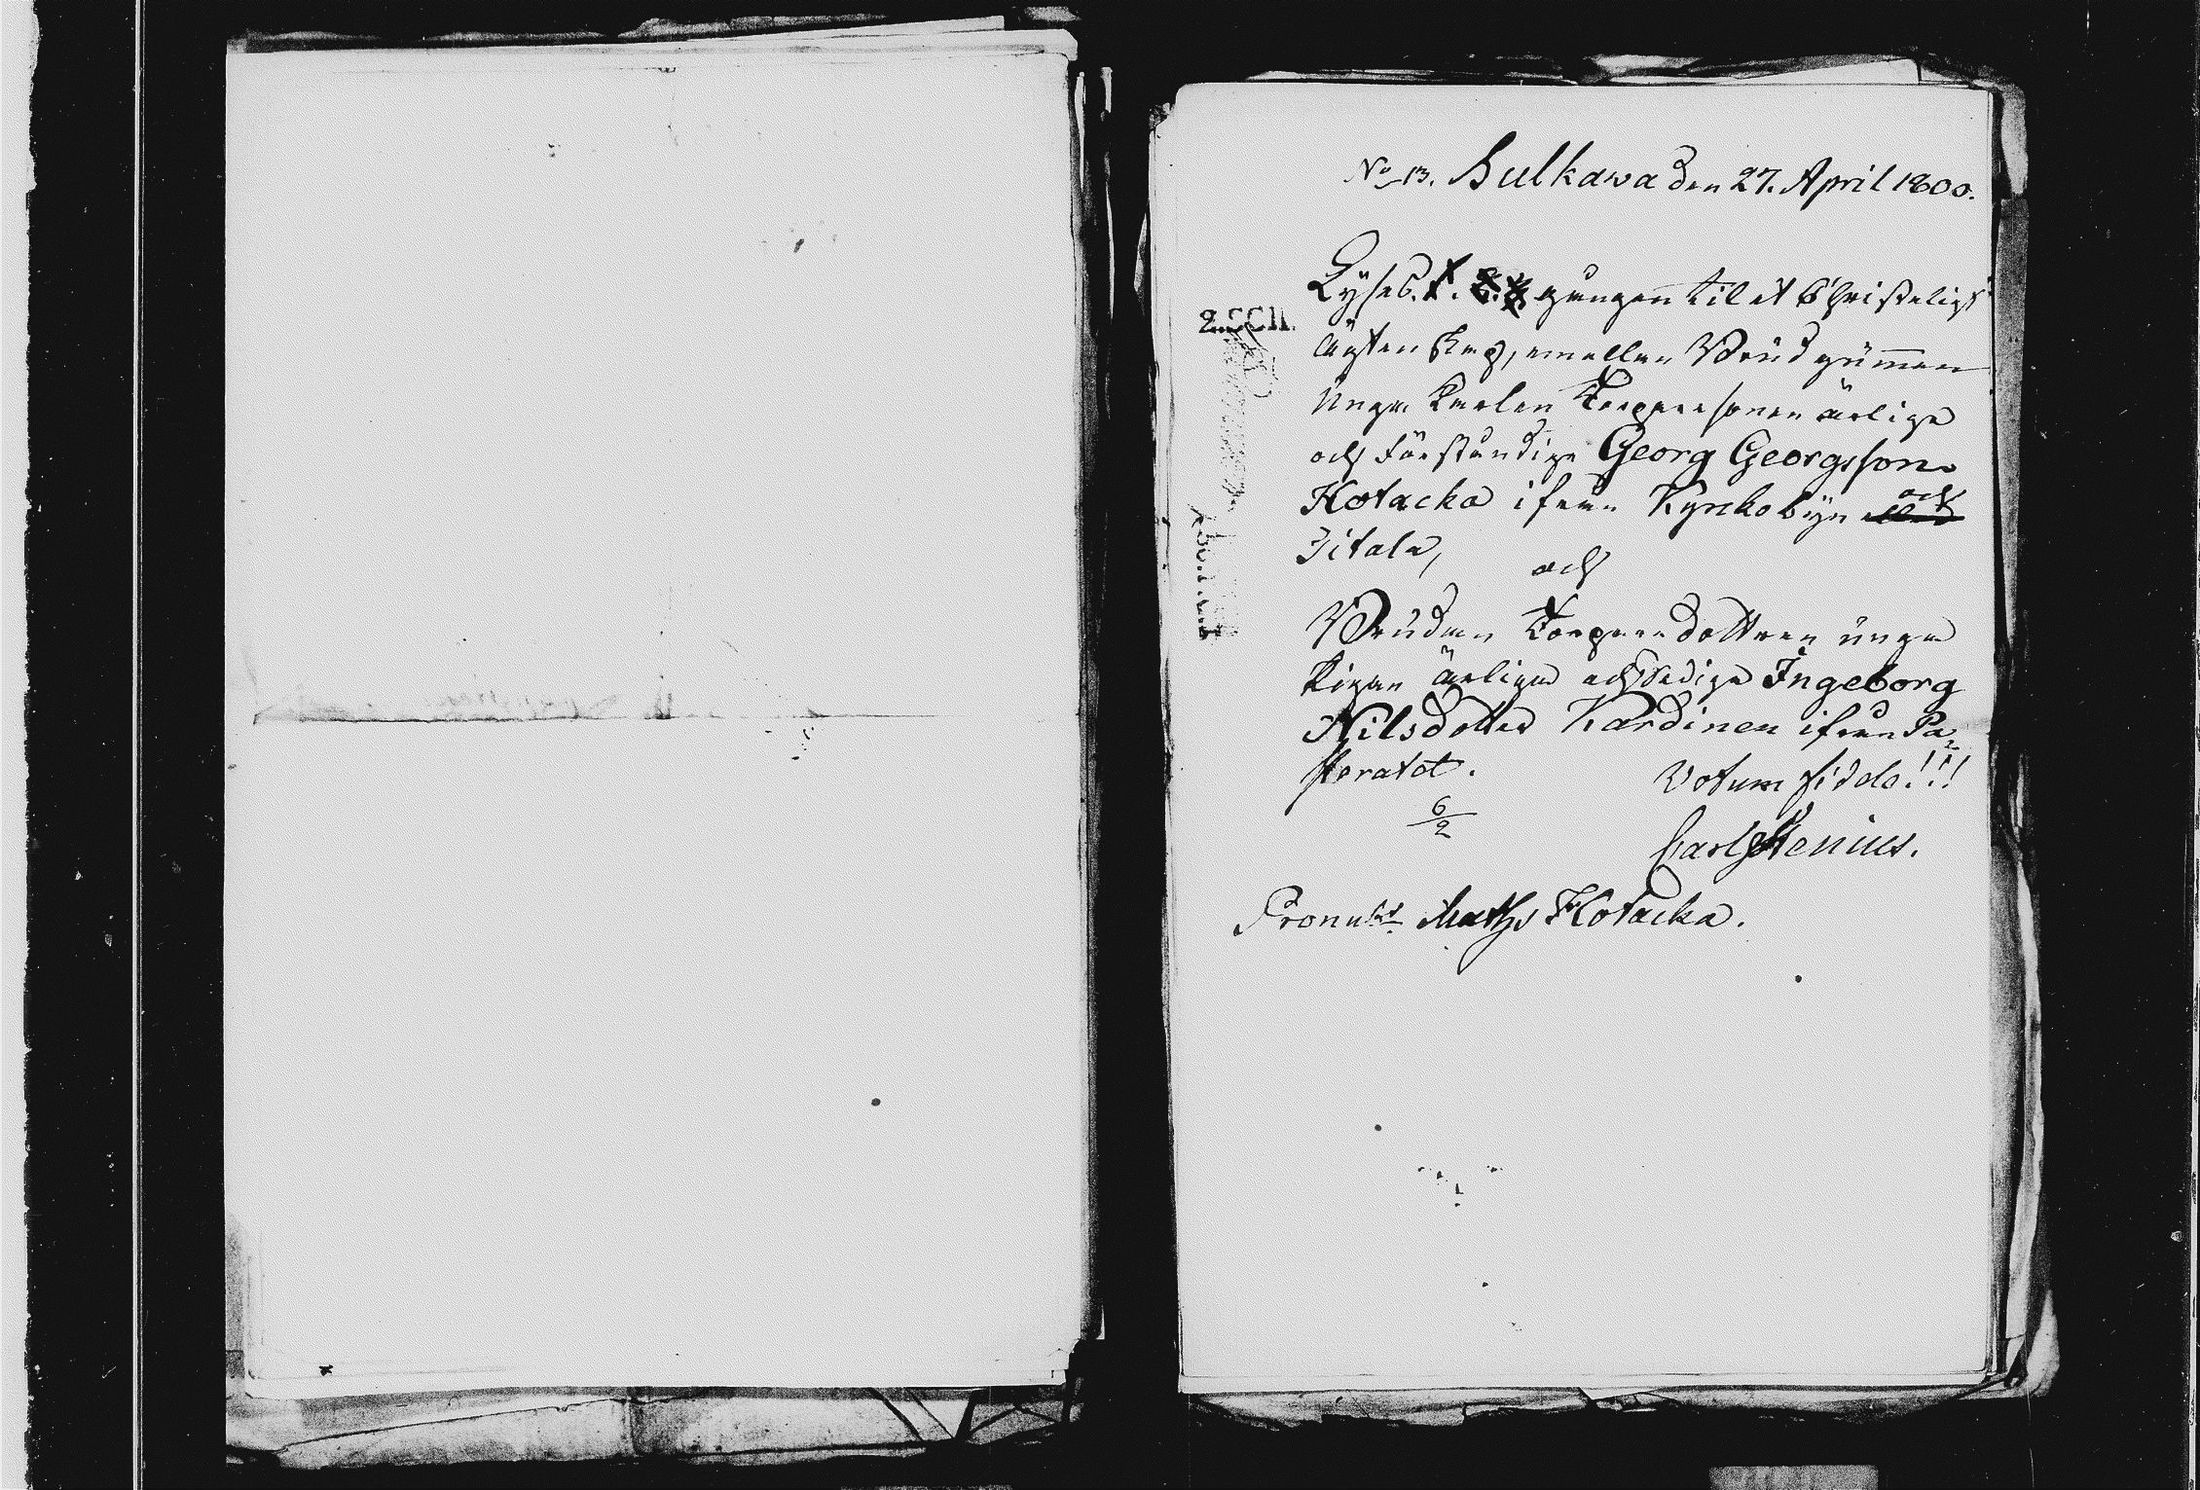 No 13. Sulkawa den 27. April 1800.
Lyses 1. 2. 3. gången til et Christeligt
2 SCH.
ägtenskap, emellan Brudgummen
Unga Karlen Torparesonen ärlige
och Förståndige Georg Georgsson
Hotacka ifrån Kyrkobÿn och
Iitala,
och
Bruden Torparedottren unga
Pigan ärliga och Sediga Ingeborg
Nilsdotter Kardinen ifrån Pa
storatet.
Votum fidele!!!
6/2
Carl Stenius.
Pronubt Maths Hotacka.